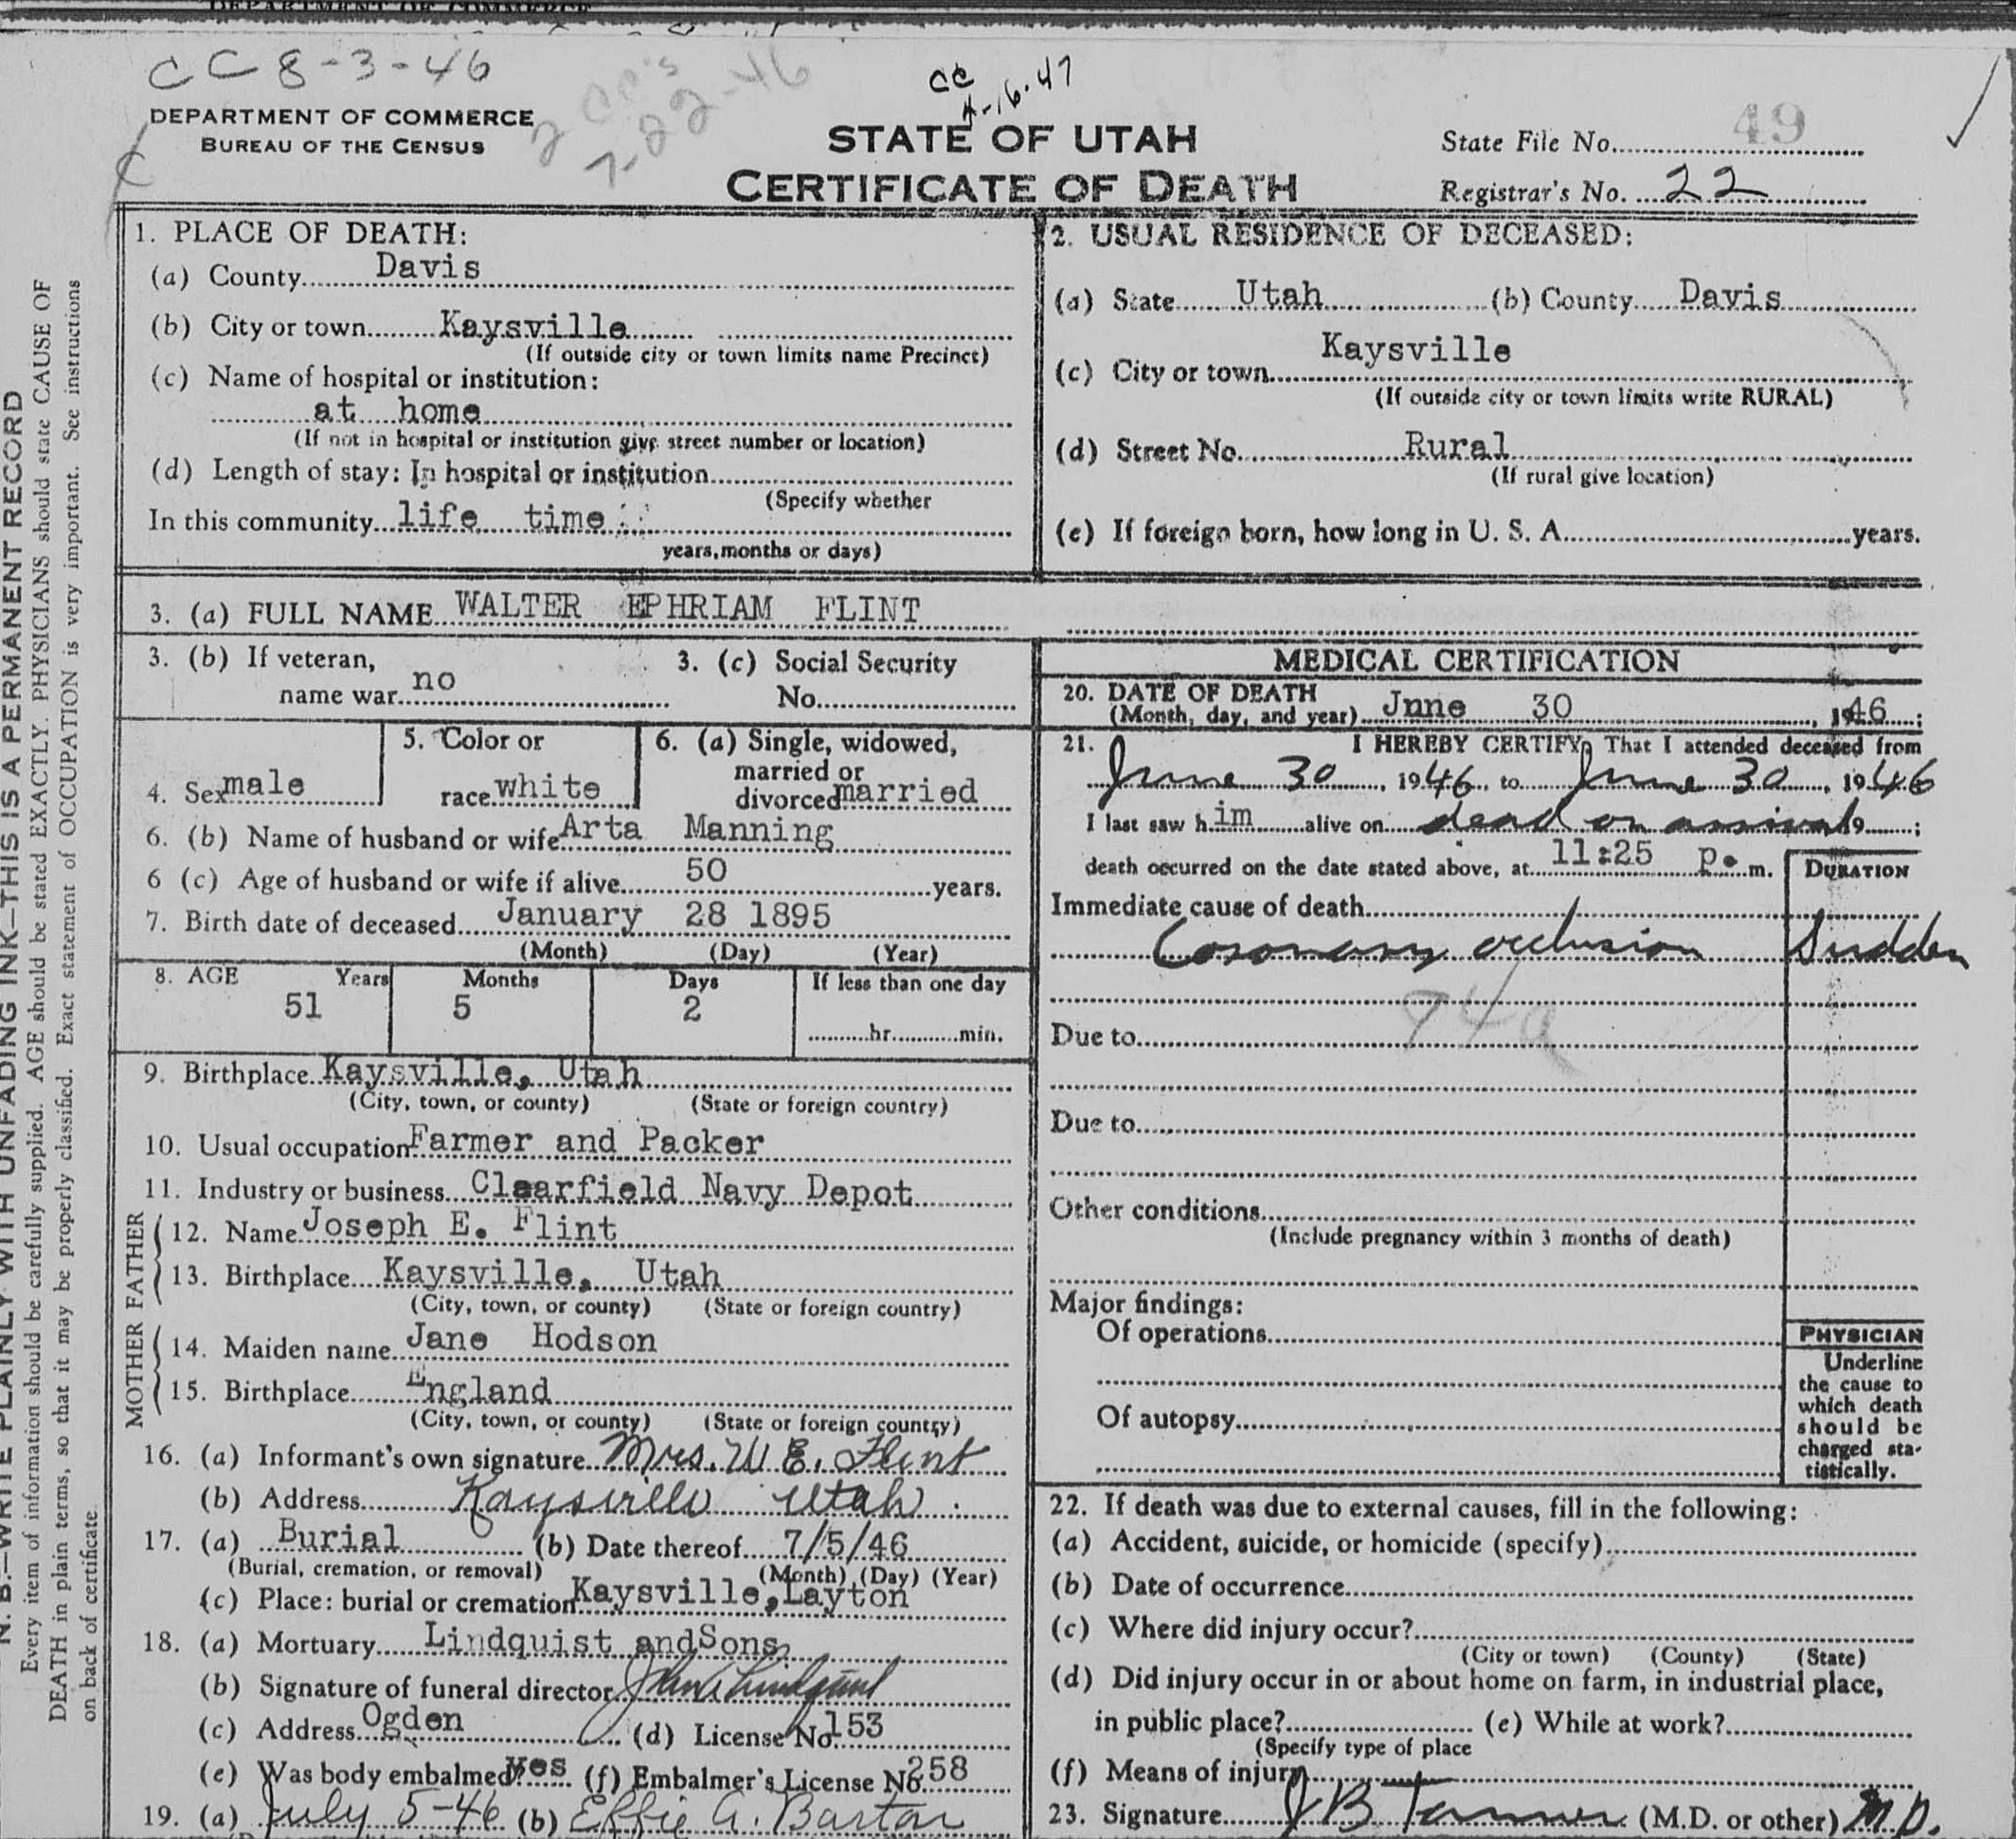 DEPARTMENT OF COMMERCE
CC 8-3-46
2 CC's
7-22-46
CC
4-16-47
DEPARTMENT OF COMMERCE
BUREAU OF THE CENSUS
STATE OF UTAH
CERTIFICATE OF DEATH
State File No. 49
Registrar's No. 22
N. B.—WRITE PLAINLY WITH UNFADING INK—THIS IS A PERMANENT RECORD
Every item of information should be carefully supplied. AGE should be stated EXACTLY. PHYSICIANS should state CAUSE OF
DEATH in plain terms, so that it may be properly classified. Exact statement of OCCUPATION is very important. See instructions
on back of certificate
1. PLACE OF DEATH:
(a) County Davis
(b) City or town Kaysville
(If outside city or town limits name Precinct)
(c) Name of hospital or institution:
at home
(If not in hospital or institution give street number or location)
(d) Length of stay: In hospital or institution
(Specify whether
In this community life time
years, months or days)
2. USUAL RESIDENCE OF DECEASED:
(a) State Utah (b) County Davis
(c) City or town Kaysville
(If outside city or town limits write RURAL)
(d) Street No. Rural
(If rural give location)
(e) If foreign born, how long in U. S. A. years.
3. (a) FULL NAME WALTER EPHRIAM FLINT
3. (b) If veteran,
name war no
3. (c) Social Security
No.
4. Sex male
5. Color or
race white
6. (a) Single, widowed,
married or
divorced married
6. (b) Name of husband or wife Arta Manning
6 (c) Age of husband or wife if alive 50 years.
7. Birth date of deceased January 28 1895
(Month) (Day) (Year)
8. AGE Years Months Days If less than one day
51 5 2 hr. min.
9. Birthplace Kaysville, Utah
(City, town, or county) (State or foreign country)
10. Usual occupation Farmer and Packer
11. Industry or business Clearfield Navy Depot
FATHER
12. Name Joseph E. Flint
13. Birthplace Kaysville, Utah
(City, town, or county) (State or foreign country)
MOTHER
14. Maiden name Jane Hodson
15. Birthplace England
(City, town, or county) (State or foreign country)
16. (a) Informant's own signature Mrs. W E. Flint
(b) Address Kaysville Utah.
17. (a) Burial (b) Date thereof 7/5/46
(Burial, cremation, or removal) (Month) (Day) (Year)
(c) Place: burial or cremation Kaysville, Layton
18. (a) Mortuary Lindquist and Sons
(b) Signature of funeral director Lindquist
(c) Address Ogden (d) License No. 153
(e) Was body embalmed? yes (f) Embalmer's License No. 258
19. (a) July 5-46 (b) Effie A. Barton
MEDICAL CERTIFICATION
20. DATE OF DEATH
(Month, day, and year) Jnne 30, 1946;
21. I HEREBY CERTIFY, That I attended deceased from
June 30, 1946, to June 30, 1946
I last saw h im alive on dead on arrival 19 ;
death occurred on the date stated above, at 11:25 p. m. DURATION
Immediate cause of death
Coronary occlusion Sudden
94a
Due to
Due to
Other conditions
(Include pregnancy within 3 months of death)
Major findings:
Of operations
Of autopsy
PHYSICIAN
Underline
the cause to
which death
should be
charged sta-
tistically.
22. If death was due to external causes, fill in the following:
(a) Accident, suicide, or homicide (specify)
(b) Date of occurrence
(c) Where did injury occur?
(City or town) (County) (State)
(d) Did injury occur in or about home on farm, in industrial place,
in public place? (e) While at work?
(Specify type of place
(f) Means of injury
23. Signature J B Tanner (M.D. or other) M.D.